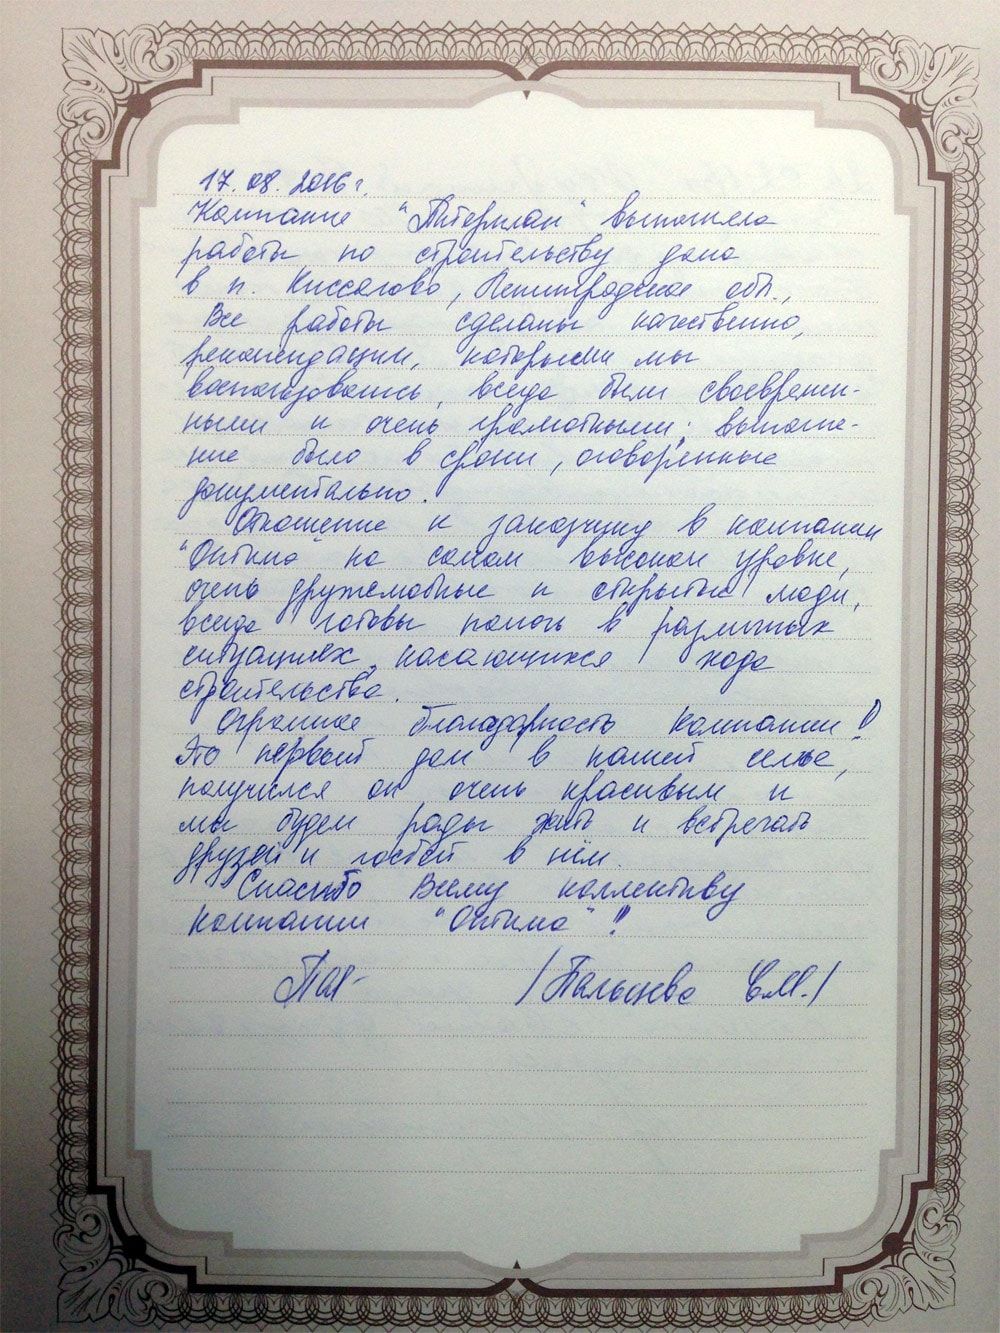 17.08.2016 г.
Компания "Питерплан" выполнила
работы по строительству дома
в п. Киссолово, Ленинградская обл.,
Все работы сделаны качественно,
рекомендации, которыми мы
воспользовались, всегда были своевремен-
ными и очень грамотными; выполне-
ние было в сроки, оговоренные
документально.
Отношение к заказчику в компании
"Оптима" на самом высоком уровне,
очень дружелюбные и открытые люди,
всегда готовы помочь в различных
ситуациях, касающихся хода
строительства.
Огромная благодарность компании!!
Это первый дом в нашей семье,
получился он очень красивым и
мы будем рады жить и встречать
друзей и гостей в нём.
Спасибо Всему коллективу
компании "Оптима"!!
/ С.М./